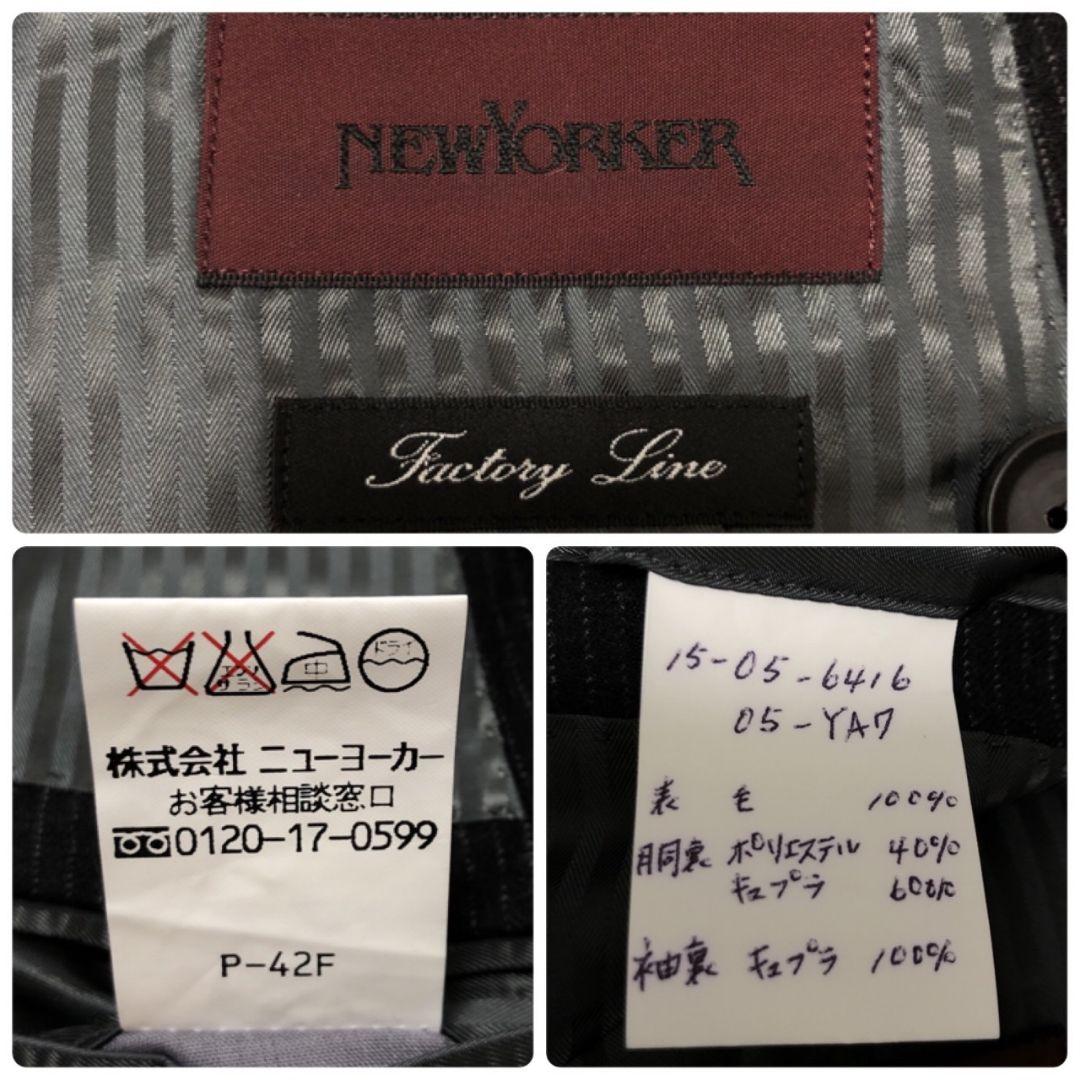 NEWYORKER
Factory Line
エンソ サラシ 中 ドライ
株式会社 ニューヨーカー
お客様相談窓口
0120-17-0599
P-42F
15-05-6416
05-YA7
表 毛 100%
胴裏 ポリエステル 40%
キュプラ 60%
袖裏 キュプラ 100%